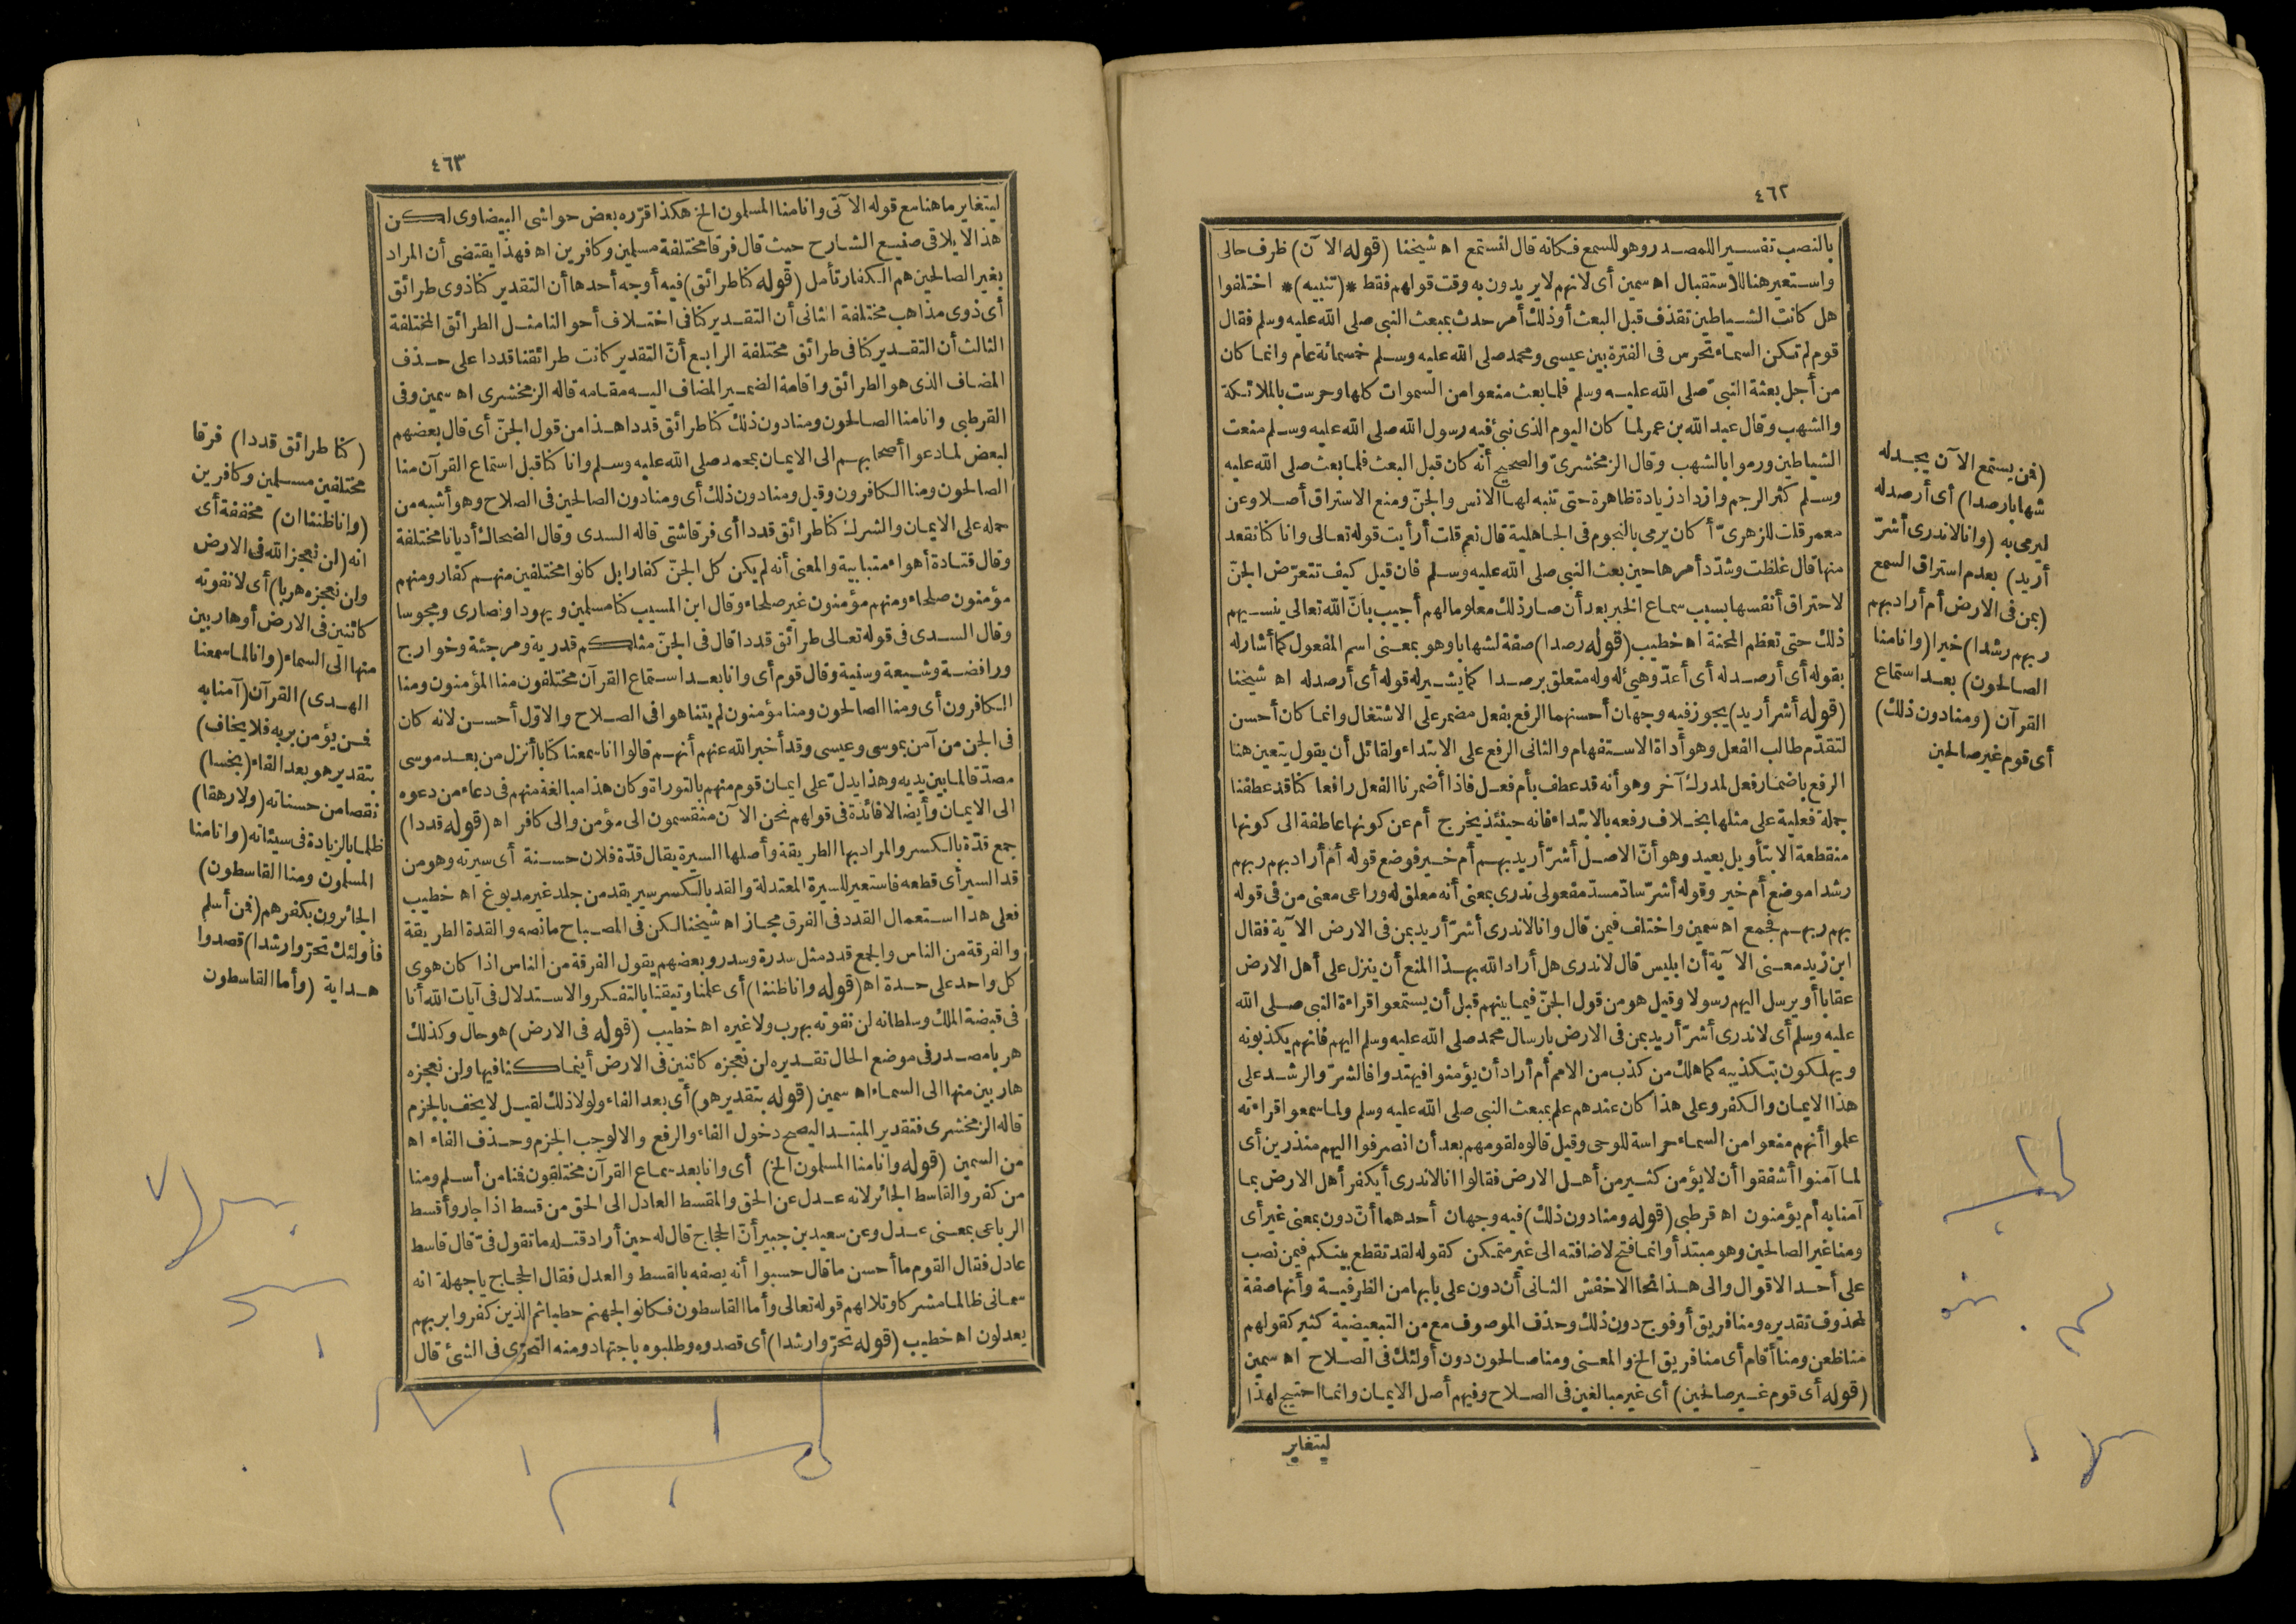 ٤٦٢
بالنصب تفسيرا للمصدر وهو للسمع فكانه قال لنستمع اه شيخنا (قوله الآن) ظرف حالى
واستعير هنا للاستقبال اه سمين أى لانهم لا يريدون به وقت قولهم فقط *(تنبيه)* اختلفوا
هل كانت الشياطين تقذف قبل البعث أو ذلك أمر حدث بمبعث النبى صلى الله عليه وسلم فقال
قوم لم تكن السماء تحرس فى الفترة بين عيسى ومحمد صلى الله عليه وسلم خمسمائة عام وانما كان
من أجل بعثة النبىّ صلى الله عليه وسلم فلما بعث منعوا من السموات كلها وحرست بالملائكة
والشهب وقال عبد الله بن عمر لما كان اليوم الذى نبئ فيه رسول الله صلى الله عليه وسلم منعت
الشياطين ورموا بالشهب وقال الزمخشرىّ والصحيح أنه كان قبل البعث فلما بعث صلى الله عليه
وسلم كثر الرجم وازداد زيادة ظاهرة حتى تنبه لها الانس والجنّ ومنع الاستراق أصلا وعن
معمر قلت للزهرىّ أكان يرمى بالنجوم فى الجاهلية قال نعم قلت أرأيت قوله تعالى وانا كنا نقعد
منها قال غلظت وشدّد أمرها حين بعث النبى صلى الله عليه وسلم فان قيل كيف تتعرّض الجنّ
لاحتراق أنفسها بسبب سماع الخبر بعد أن صار ذلك معلوما لهم أجيب بانّ الله تعالى ينسيهم
ذلك حتى تعظم المحنة اه خطيب (قوله رصدا) صفة لشهابا وهو بمعنى اسم المفعول كما أشار له
بقوله أى أرصد له أى أعدّ وهيئ له وله متعلق برصدا كما يشير له قوله أى أرصد له اه شيخنا
(قوله أشر أريد) يجوز فيه وجهان أحسنهما الرفع بفعل مضمر على الاشتغال وانما كان أحسن
لتقدّم طالب الفعل وهو أداة الاستفهام والثانى الرفع على الابتداء ولقائل أن يقول يتعين هنا
الرفع باضمار فعل لمدرك آخر وهو أنه قد عطف بأم فعل فاذا أضمرنا الفعل رافعا كنا قد عطفنا
جملة فعلية على مثلها بخلاف رفعه بالابتداء فانه حينئذ يخرج أم عن كونها عاطفة الى كونها
منقطعة الا بتأويل بعيد وهو أنّ الاصل أشرّ أريد بهم أم خير فوضع قوله أم أراد بهم ربهم
رشدا موضع أم خير وقوله أشرّ سادّ مسدّ مفعولى ندرى بمعنى أنه معلق له وراعى معنى من فى قوله
بهم ربهم فجمع اه سمين واختلف فيمن قال وانا لا ندرى أشرّ أريد بمن فى الارض الآية فقال
ابن زيد معنى الآية أن ابليس قال لا ندرى هل أراد الله بهذا المنع أن ينزل على أهل الارض
عقابا أو يرسل اليهم رسولا وقيل هو من قول الجنّ فيما بينهم قبل أن يستمعوا قراءة النبى صلى الله
عليه وسلم أى لا ندرى أشرّ أريد بمن فى الارض بارسال محمد صلى الله عليه وسلم اليهم فانهم يكذبونه
ويهلكون بتكذيبه كما هلك من كذب من الامم أم أراد أن يؤمنوا فيهتدوا فالشرّ والرشد على
هذا الايمان والكفر وعلى هذا كان عندهم علم بمبعث النبى صلى الله عليه وسلم ولما سمعوا قراءته
علموا أنهم منعوا من السماء حراسة للوحى وقيل قالوه لقومهم بعد أن انصرفوا اليهم منذرين أى
لما آمنوا أشفقوا أن لا يؤمن كثير من أهل الارض فقالوا انا لا ندرى أيكفر أهل الارض بما
آمنا به أم يؤمنون اه قرطبى (قوله ومنا دون ذلك) فيه وجهان أحدهما أنّ دون بمعنى غير أى
ومنا غير الصالحين وهو مبتدأ وانما فتح لاضافته الى غير متمكن كقوله لقد تقطع بينكم فيمن نصب
على أحد الاقوال والى هذا نحا الاخفش الثانى أن دون على بابها من الظرفية وأنها صفة
لمحذوف تقديره ومنا فريق أو فوج دون ذلك وحذف الموصوف مع من التبعيضية كثير كقولهم
منا ظعن ومنا أقام أى منا فريق الخ والمعنى ومنا صالحون دون أولئك فى الصلاح اه سمين
(قوله أى قوم غير صالحين) أى غير مبالغين فى الصلاح وفيهم أصل الايمان وانما احتيج لهذا
ليتغاير
(فمن يستمع الآن يجد له
شهابا رصدا) أى أرصد له
ليرمى به (وانا لا ندرى أشرّ
أريد) بعدم استراق السمع
(بمن فى الارض أم أراد بهم
ربهم رشدا) خيرا (وانا منا
الصالحون) بعد استماع
القرآن (ومنا دون ذلك)
أى قوم غير صالحين
٤٦٣
ليتغاير ما هنا مع قوله الآتى وانا منا المسلمون الخ هكذا قرّره بعض حواشى البيضاوى لكن
هذا لا يلاقى صنيع الشارح حيث قال فرقا مختلفة مسلمين وكافرين اه فهذا يقتضى أن المراد
بغير الصالحين هم الكفار تأمل (قوله كنا طرائق) فيه أوجه أحدها أن التقدير كنا ذوى طرائق
أى ذوى مذاهب مختلفة الثانى أن التقدير كنا فى اختلاف أحوالنا مثل الطرائق المختلفة
الثالث أن التقدير كنا فى طرائق مختلفة الرابع أنّ التقدير كانت طرائقنا قددا على حذف
المضاف الذى هو الطرائق واقامة الضمير المضاف اليه مقامه قاله الزمخشرى اه سمين وفى
القرطبى وانا منا الصالحون ومنا دون ذلك كنا طرائق قددا هذا من قول الجنّ أى قال بعضهم
لبعض لما دعوا أصحابهم الى الايمان بمحمد صلى الله عليه وسلم وانا كنا قبل استماع القرآن منا
الصالحون ومنا الكافرون وقيل ومنا دون ذلك أى ومنا دون الصالحين فى الصلاح وهو أشبه من
حمله على الايمان والشرك كنا طرائق قددا أى فرقا شتى قاله السدى وقال الضحاك أديانا مختلفة
وقال قتادة أهواء متباينة والمعنى أنه لم يكن كل الجنّ كفارا بل كانوا مختلفين منهم كفار ومنهم
مؤمنون صلحاء ومنهم مؤمنون غير صلحاء وقال ابن المسيب كنا مسلمين ويهودا ونصارى ومجوسا
وقال السدى فى قوله تعالى طرائق قددا قال فى الجنّ مثلكم قدرية ومرجئة وخوارج
ورافضة وشيعة وسنية وقال قوم أى وانا بعد استماع القرآن مختلفون منا المؤمنون ومنا
الكافرون أى ومنا الصالحون ومنا مؤمنون لم يتناهوا فى الصلاح والاوّل أحسن لانه كان
فى الجن من آمن بموسى وعيسى وقد أخبر الله عنهم أنهم قالوا انا سمعنا كتابا أنزل من بعد موسى
مصدّقا لما بين يديه وهذا يدلّ على ايمان قوم منهم بالتوراة وكان هذا مبالغة منهم فى دعاء من دعوه
الى الايمان وأيضا لا فائدة فى قولهم نحن الآن منقسمون الى مؤمن والى كافر اه (قوله قددا)
جمع قدّة بالكسر والمراد بها الطريقة وأصلها السيرة يقال قدّة فلان حسنة أى سيرته وهو من
قد السير أى قطعه فاستعير للسيرة المعتدلة والقد بالكسر سير يقد من جلد غير مدبوغ اه خطيب
فعلى هذا استعمال القدد فى الفرق مجاز اه شيخنا لكن فى المصباح ما نصه والقدة الطريقة
والفرقة من الناس والجمع قدد مثل سدرة وسدر وبعضهم يقول الفرقة من الناس اذا كان هوى
كل واحد على حدة اه (قوله وانا ظننا) أى علمنا وتيقنا بالتفكر والاستدلال فى آيات الله أنا
فى قبضة الملك وسلطانه لن نفوته بهرب ولا غيره اه خطيب (قوله فى الارض) هو حال وكذلك
هربا مصدر فى موضع الحال تقديره لن نعجزه كائنين فى الارض أينما كنا فيها ولن نعجزه
هاربين منها الى السماء اه سمين (قوله بتقدير هو) أى بعد الفاء ولولا ذلك لقيل لا يخف بالجزم
قاله الزمخشرى فتقدير المبتدا ليصح دخول الفاء والرفع والا لوجب الجزم وحذف الفاء اه
من السمين (قوله وانا منا المسلمون الخ) أى وانا بعد سماع القرآن مختلفون فمنا من أسلم ومنا
من كفر والقاسط الجائر لانه عدل عن الحق والمقسط العادل الى الحق من قسط اذا جار وأقسط
الرباعى بمعنى عدل وعن سعيد بن جبير أنّ الحجاج قال له حين أراد قتله ما تقول فىّ قال قاسط
عادل فقال القوم ما أحسن ما قال حسبوا أنه يصفه بالقسط والعدل فقال الحجاج يا جهلة انه
سمانى ظالما مشركا وتلا لهم قوله تعالى وأما القاسطون فكانوا لجهنم حطبا ثم الذين كفروا بربهم
يعدلون اه خطيب (قوله تحرّوا رشدا) أى قصدوه وطلبوه باجتهاد ومنه التحرّى فى الشئ قال
(كنا طرائق قددا) فرقا
مختلفين مسلمين وكافرين
(وانا ظننا ان) مخففة أى
انه (لن نعجز الله فى الارض
ولن نعجزه هربا) أى لا نفوته
كائنين فى الارض أو هاربين
منها الى السماء (وانا لما سمعنا
الهدى) القرآن (آمنا به
فمن يؤمن بربه فلا يخاف)
بتقدير هو بعد الفاء (بخسا)
نقصا من حسناته (ولا رهقا)
ظلما بالزيادة فى سيئاته (وانا منا
المسلمون ومنا القاسطون)
الجائرون بكفرهم (فمن أسلم
فأولئك تحرّوا رشدا) قصدوا
هداية (وأما القاسطون